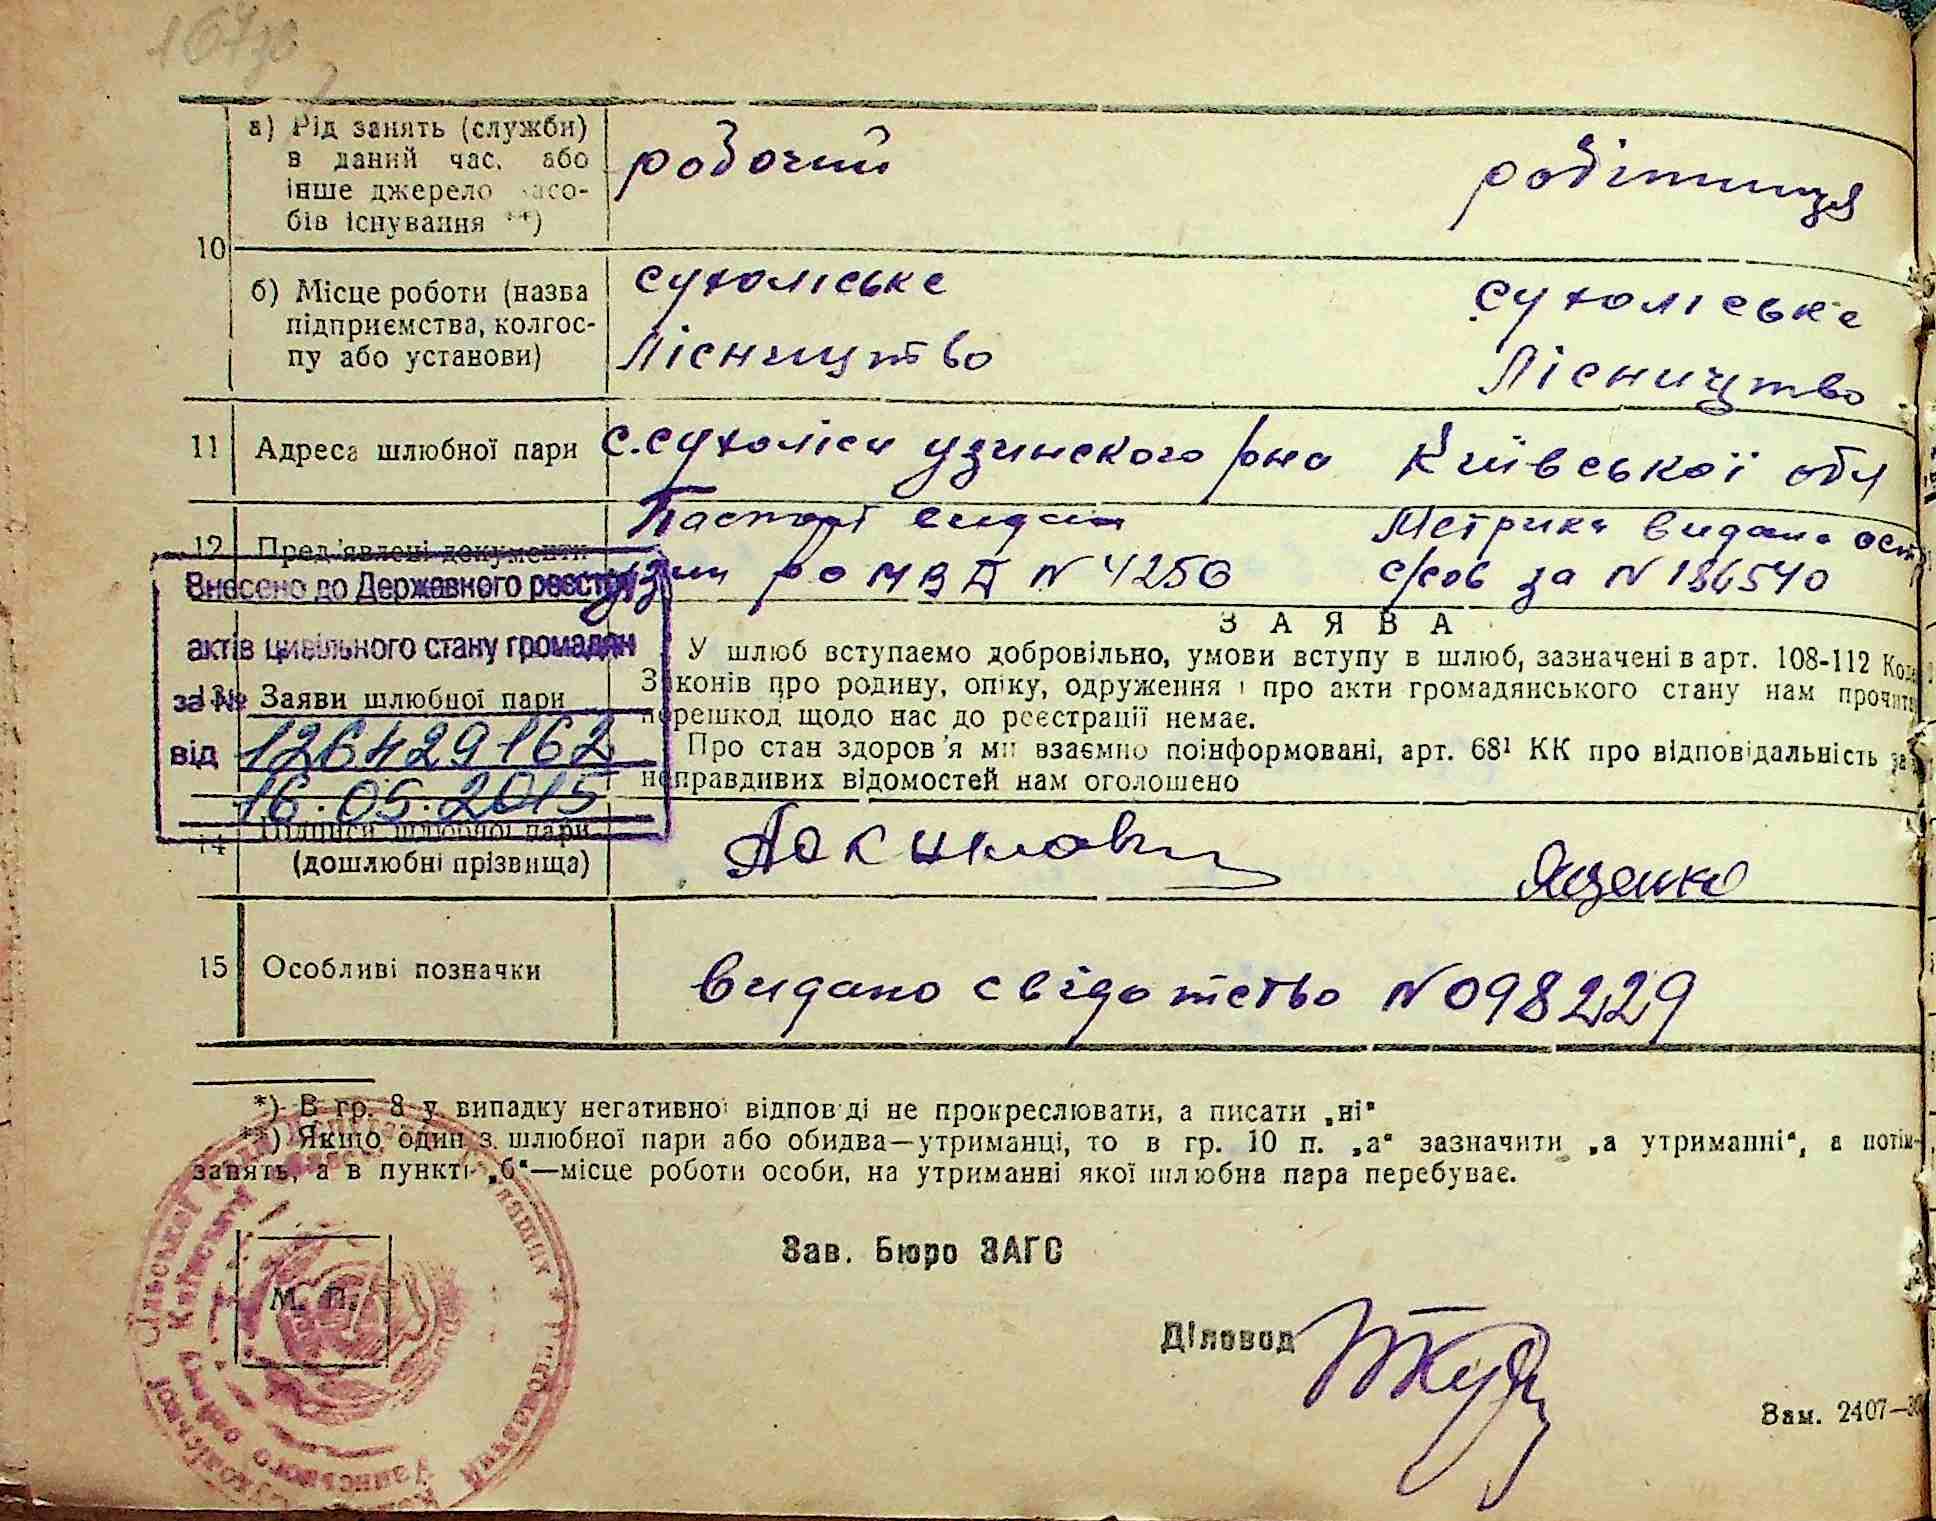 а) Рід занять (служби)
в даний час, або
інше джерело засо-
бів існування **)
робочий
робітниця
10
б) Місце роботи (назва
підприємства, колгос-
пу або установи)
сухоліське
Лісництво
сухоліське
Лісництво
11 Адреса шлюбної пари
с. сухоліси узинского р/на Київської обл
12 Пред'явлені документи
Паспорт видан
узин ро МВД N 4250
Метрика видана
с/сов за N 186540
Внесено до Державного реєстру
актів цивільного стану громадян
за №
126429162
від
16.05.2015
13 Заяви шлюбної пари
ЗАЯВА
У шлюб вступаємо добровільно, умови вступу в шлюб, зазначені в арт. 108-112
Законів про родину, опіку, одруження і про акти громадянського стану нам
перешкод щодо нас до реєстрації немає.
Про стан здоров'я ми взаємно поінформовані, арт. 68¹ КК про відповідальність за
неправдивих відомостей нам оголошено
14 Підписи шлюбної пари
(дошлюбні прізвища)
Ященко
15 Особливі позначки
видано свідотство N 098229
*) В гр. 8 у випадку негативної відповіді не прокреслювати, а писати „ні“
**) Якщо один з шлюбної пари або обидва—утриманці, то в гр. 10 п. „а“ зазначити „а утриманні“, а потім
занять, а в пункті „б“—місце роботи особи, на утриманні якої шлюбна пара перебуває.
Зав. Бюро ЗАГС
М. П.
Діловод
Зам. 2407